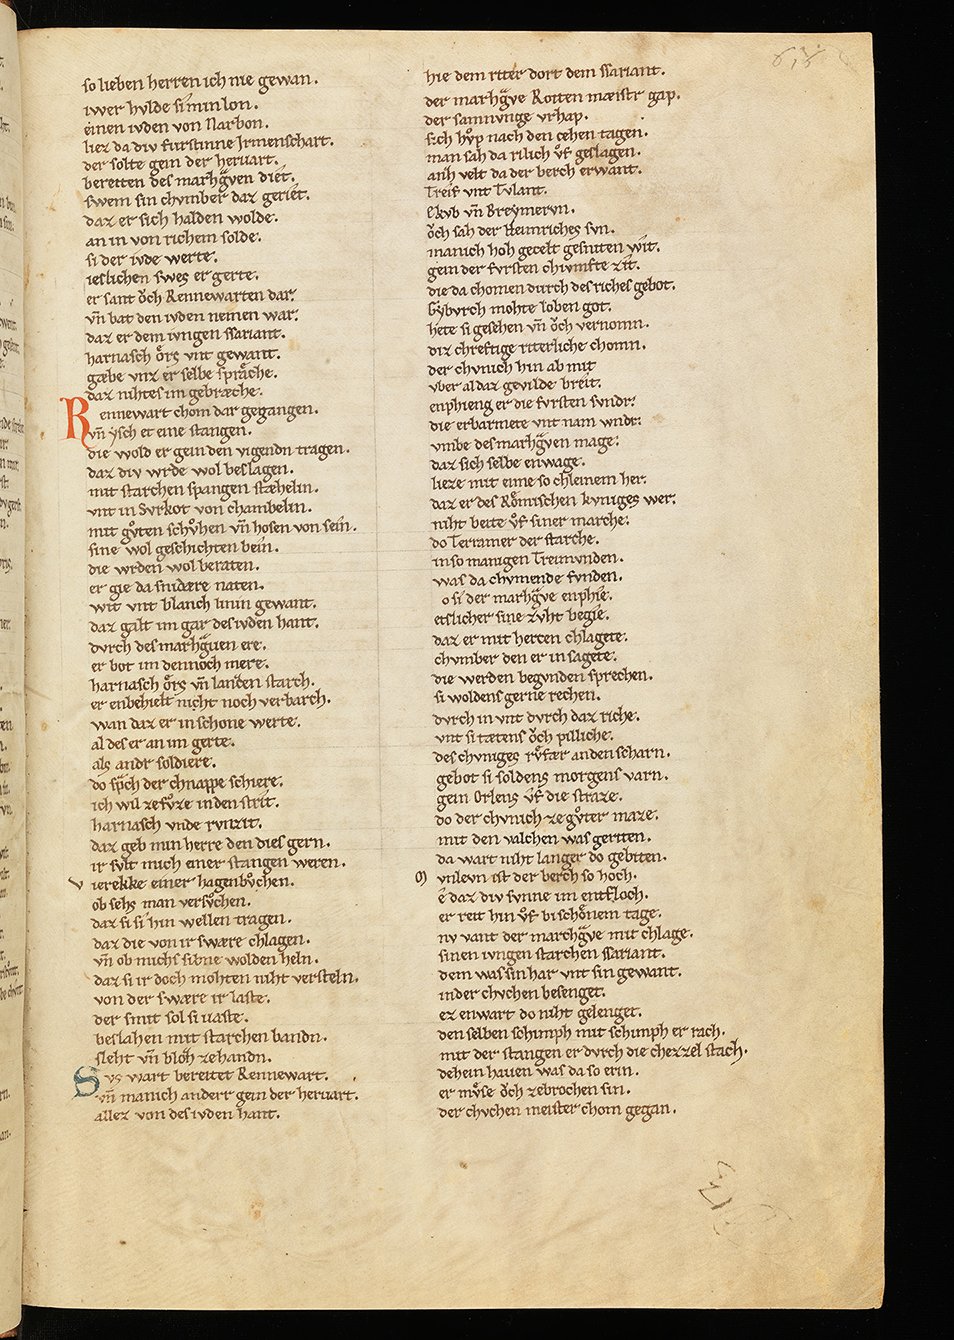 so lieben herren ich nie gewan.
iwer hvlde si min lon.
einen ivden von Narbon.
liez da div furstinne Jrmenschart.
der solte gein der hervart.
bereiten des marhgͣven diet.
swem sin chvmber daz geriet.
daz er sich halden wolde.
an in von richem solde.
si der ivde werte.
ieslichen swes er gerte.
er sant ŏch Rennewarten dar.
vn̄ bat den ivden nemen war.
daz er dem ivngen ssariant.
harnasch ŏrs vnt gewant.
gæbe vnz er selbe spræche.
daz nihtes im gebræche.
Rennewart chom dar gegangen.
vn̄ iesch et eine stangen.
die wold er gein den vigendn tragen.
daz div wrde wol beslagen.
mit starchen spangen stæhelin.
vnt in Svrkot von chambelin.
mit gv̊ten schv̊hen vn̄ hosen von sein.
sine wol geschichten bein.
die wrden wol beraten.
er gie da snidære naten.
wit vnt blanch linin gewant.
daz galt im gar des ivden hant.
dvrch des marhgͣuen ere.
er bot im dennoch mere.
harnasch ŏrs vn̄ landen starch.
er enbehielt nicht noch verbarch.
wan daz er in schone werte.
al des er an im gerte.
als andr soldiere.
do sp̄ch der chnappe schiere.
ich wil ze fv̊ze in den strit.
harnasch vnde rvnzit.
daz geb min herre den dies gern.
ir svlt mich einer stangen weren.
vierekke einer hagenbv̊chen.
ob sehs man versv̊chen.
daz si si hin wellen tragen.
daz die von ir swære chlagen.
vn̄ ob michs sibne wolden heln.
daz si ir doch mohten niht versteln.
von der swære ir laste.
der smit sol si vaste.
beslahen mit starchen bandn.
sleht vn̄ bloh zehandn.
Svs wart bereitet Rennewart.
vn̄ manich anderr gein der hervart.
allez von des ivden hant.
hie dem ritter dort dem ssariant.
der marhgͣve Rotten mæistr gap.
der samnvnge vrhap.
sich hv̊p nach den cehen tagen.
man sah da rilich v̊f geslagen.
anh velt da der berch erwant.
Treif vnt Tvlant.
Ekvb vn̄ Breymervn.
ŏch sah der Heimriches svn.
manich hoh gecelt gesniten wit.
gein der fvrsten chvmfte zit.
die da chomen durch des riches gebot.
Gẏbvrch mohte loben got.
hete si gesehen vn̄ ŏch vernomn.
diz chreftige ritterliche chomn.
der chvnich hin ab mit
vber al daz gevilde breit.
enphieng er die fvrsten svndr.
die erbarmete vnt nam wndr.
vmbe des marhgͣven mage.
daz sich selbe enwage.
lieze mit eime so chleinem her.
daz er des Rŏmischen kvniges wer.
niht beite v̊f siner marche.
do Terramer der starche.
in so manigen Treimvnden.
was da chvmende fvnden.
o si der marhgͣve enphie.
etslicher sine zvht begie.
daz er mit herten chlagete.
chvmber den er in sagete.
die werden begvnden sprechen.
si woldens gerne rechen.
dvrch in vnt dvrch daz riche.
vnt si tætens ŏch pilliche.
des chvniges rv̊fær an den scharn.
gebot si soldens morgens varn.
gein Orlens v̊f die straze.
do der chvnich ze gv̊ter maze.
mit den valchen was geriten.
da wart niht langer do gebiten.
Mvnlevn ist der berch so hoch.
e daz div svnne im entfloch.
er reit hin v̊f bi schŏnem tage.
nv vant der marchgͣve mit chlage.
sinen ivngen starchen ssariant.
dem was sin har vnt sin gewant.
in der chvchen besenget.
ez enwart do niht gelenget.
den selben schimph mit schimph er rach.
mit der stangen er dvrch die chezzel stach.
dehein hauen was da so erin.
er mv̊se ŏch zebrochen sin.
der chvchen meister chom gegan.